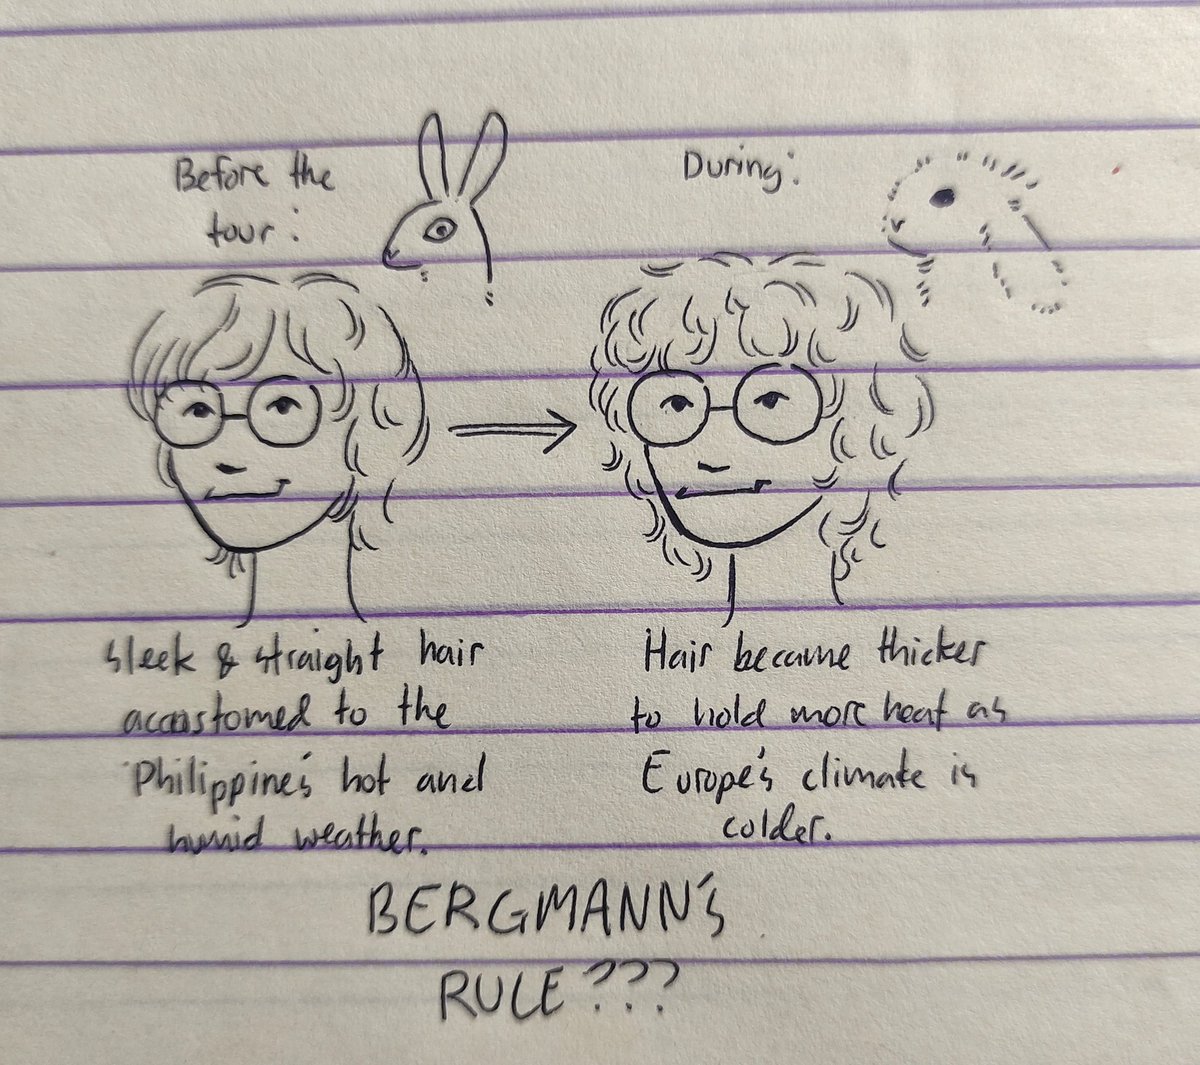 Before the
tour:
During:
Sleek & straight hair
accustomed to the
Philippine's hot and
humid weather.
Hair became thicker
to hold more heat as
Europe's climate is
colder.
BERGMANN'S
RULE???